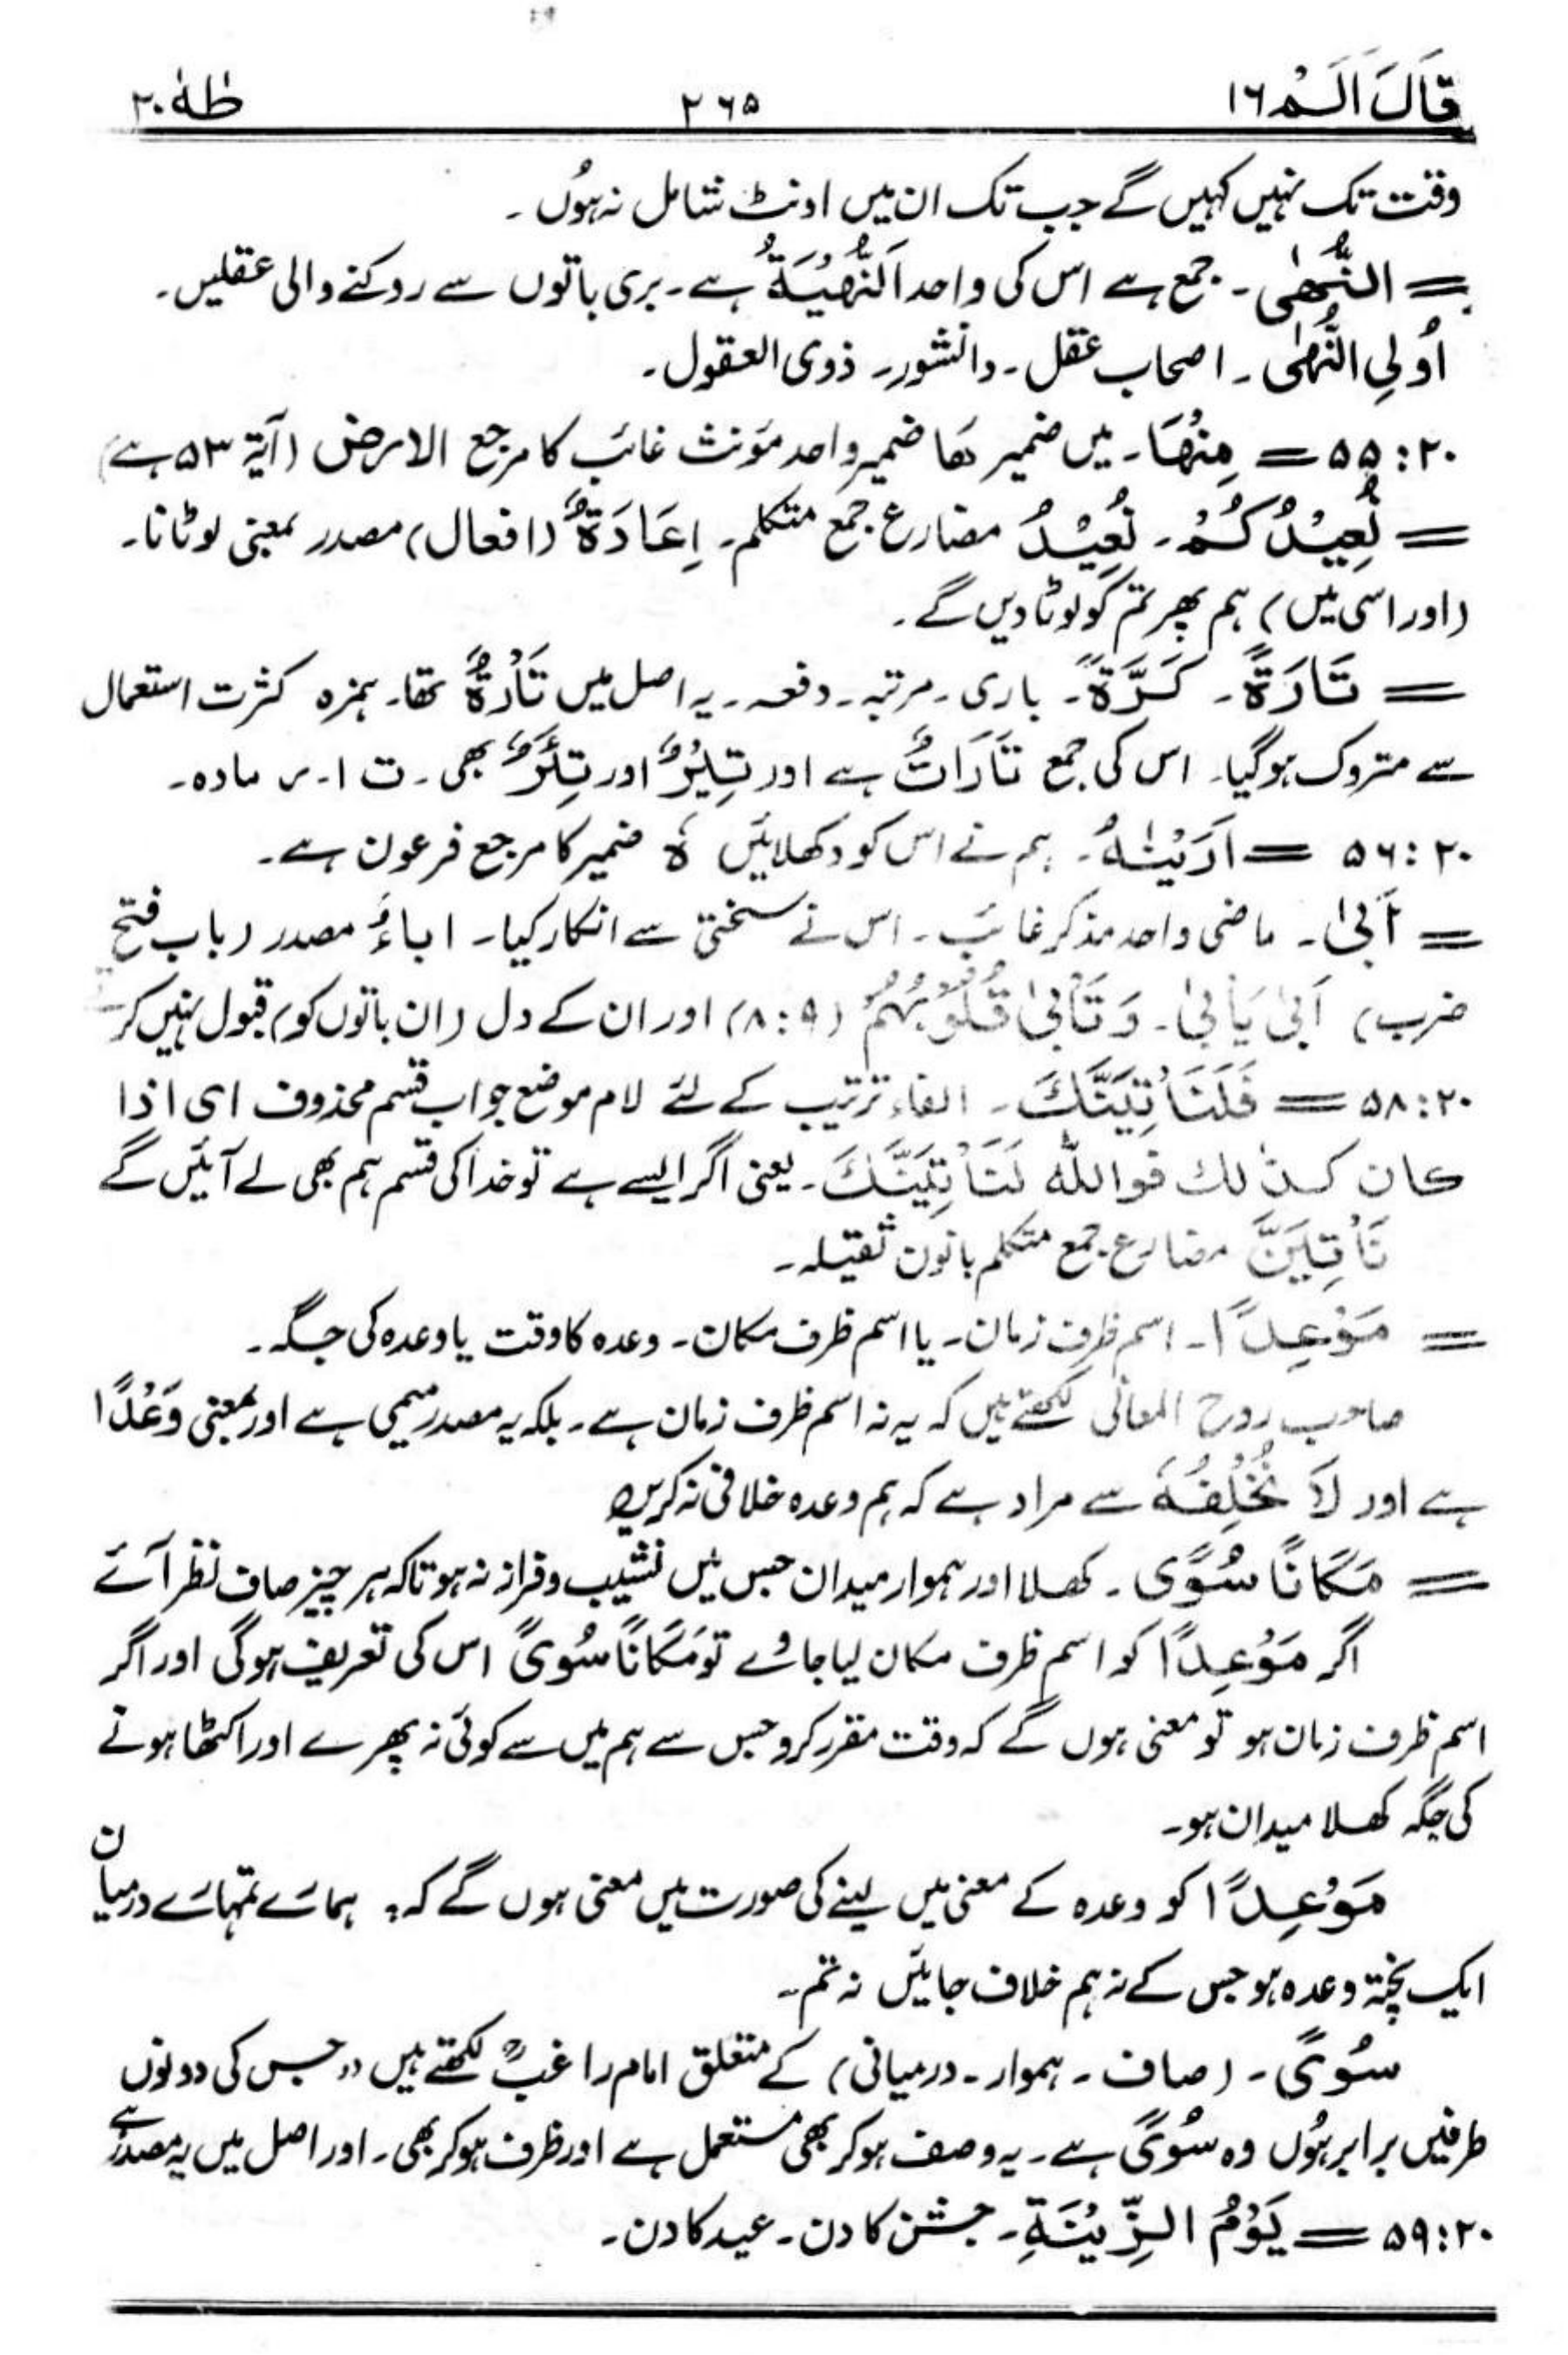 قَالَ اَلَمْ ۱۶ ۲۶۵ طٰهٰ ۲۰
وقت تک نہیں کہیں گے جب تک ان میں اونٹ شامل نہ ہوں ۔
= النُّھٰی ۔ جمع ہے اس کی واحد اَلنُّھْیَۃُ ہے ۔ بری باتوں سے روکنے والی عقلیں ۔
اُولِی النُّھٰی ۔ اصحاب عقل ۔ دانشور ۔ ذوی العقول ۔
۲۰ : ۵۵ = مِنْھَا ۔ میں ضمیر ھا ضمیر واحد مؤنث غائب کا مرجع الارض (آیۃ ۵۳ ہے)
= نُعِیْدُ کُمْ ۔ نُعِیْدُ مضارع جمع متکلم ۔ اِعَادَۃٌ (افعال) مصدر بمعنی لوٹانا ۔
(اور اسی میں) ہم پھر تم کو لوٹا دیں گے ۔
= تَارَۃً ۔ کَرَّۃً ۔ باری ۔ مرتبہ ۔ دفعہ ۔ یہ اصل میں تَأْرَۃٌ تھا ۔ ہمزہ کثرت استعمال
سے متروک ہو گیا ۔ اس کی جمع تَارَاتٌ ہے اور تِیَرٌ اور تِئَرٌ بھی ۔ ت ا ۔ ر مادہ ۔
۲۰ : ۵۶ = اَرَیْنٰہُ ۔ ہم نے اس کو دکھلائیں ہُ ضمیر کا مرجع فرعون ہے ۔
= اَبٰی ۔ ماضی واحد مذکر غائب ۔ اس نے سختی سے انکار کیا ۔ اباءٌ مصدر (باب فتح
ضرب) اَبٰی یَاْبٰی ۔ وَتَاْبٰی قُلُوْبُہُمْ (۹ : ۸) اور ان کے دل (ان باتوں کو) قبول نہیں کرتے
۲۰ : ۵۸ = فَلَنَاْتِیَنَّکَ ۔ الفاء ترتیب کے لئے لام موضع جواب قسم محذوف ای اذا
کان کذٰلک فواللّٰہ لَنَاْتِیَنَّکَ ۔ یعنی اگر ایسے ہے تو خدا کی قسم ہم بھی لے آئیں گے
نَاْتِیَنَّ مضارع جمع متکلم بانون ثقیلہ ۔
= مَوْعِدًا ۔ اسم ظرف زمان ۔ یا اسم ظرف مکان ۔ وعدہ کا وقت یا وعدہ کی جگہ ۔
صاحب روح المعانی لکھتے ہیں کہ یہ نہ اسم ظرف زمان ہے ۔ بلکہ یہ مصدر میمی ہے اور بمعنی وَعْدًا
ہے اور لَا نُخْلِفُہٗ سے مراد ہے کہ ہم وعدہ خلافی نہ کریں
= مَکَانًا سُوًی ۔ کھلا اور ہموار میدان جس میں نشیب و فراز نہ ہو تاکہ ہر چیز صاف نظر آئے
اگر مَوْعِدًا کو اسم ظرف مکان لیا جاوے تو مَکَانًا سُوًی اس کی تعریف ہو گی اور اگر
اسم ظرف زمان ہو تو معنی ہوں گے کہ وقت مقرر کرو جس سے ہم میں سے کوئی نہ پھرے اور اکٹھا ہونے
کی جگہ کھلا میدان ہو ۔
مَوْعِدًا کو وعدہ کے معنی میں لینے کی صورت میں معنی ہوں گے کہ ہمارے تمہارے درمیان
ایک پختہ وعدہ ہو جس کے نہ ہم خلاف جائیں نہ تم ۔
سُوًی ۔ (صاف ۔ ہموار ۔ درمیانی) کے متعلق امام راغبؒ لکھتے ہیں ,, جس کی دونوں
طرفیں برابر ہوں وہ سُوًی ہے ۔ یہ وصف ہو کر بھی مستعمل ہے اور ظرف ہو کر بھی ۔ اور اصل میں یہ مصدر ہے
۲۰ : ۵۹ = یَوْمُ الزِّیْنَۃِ ۔ جشن کا دن ۔ عید کا دن ۔